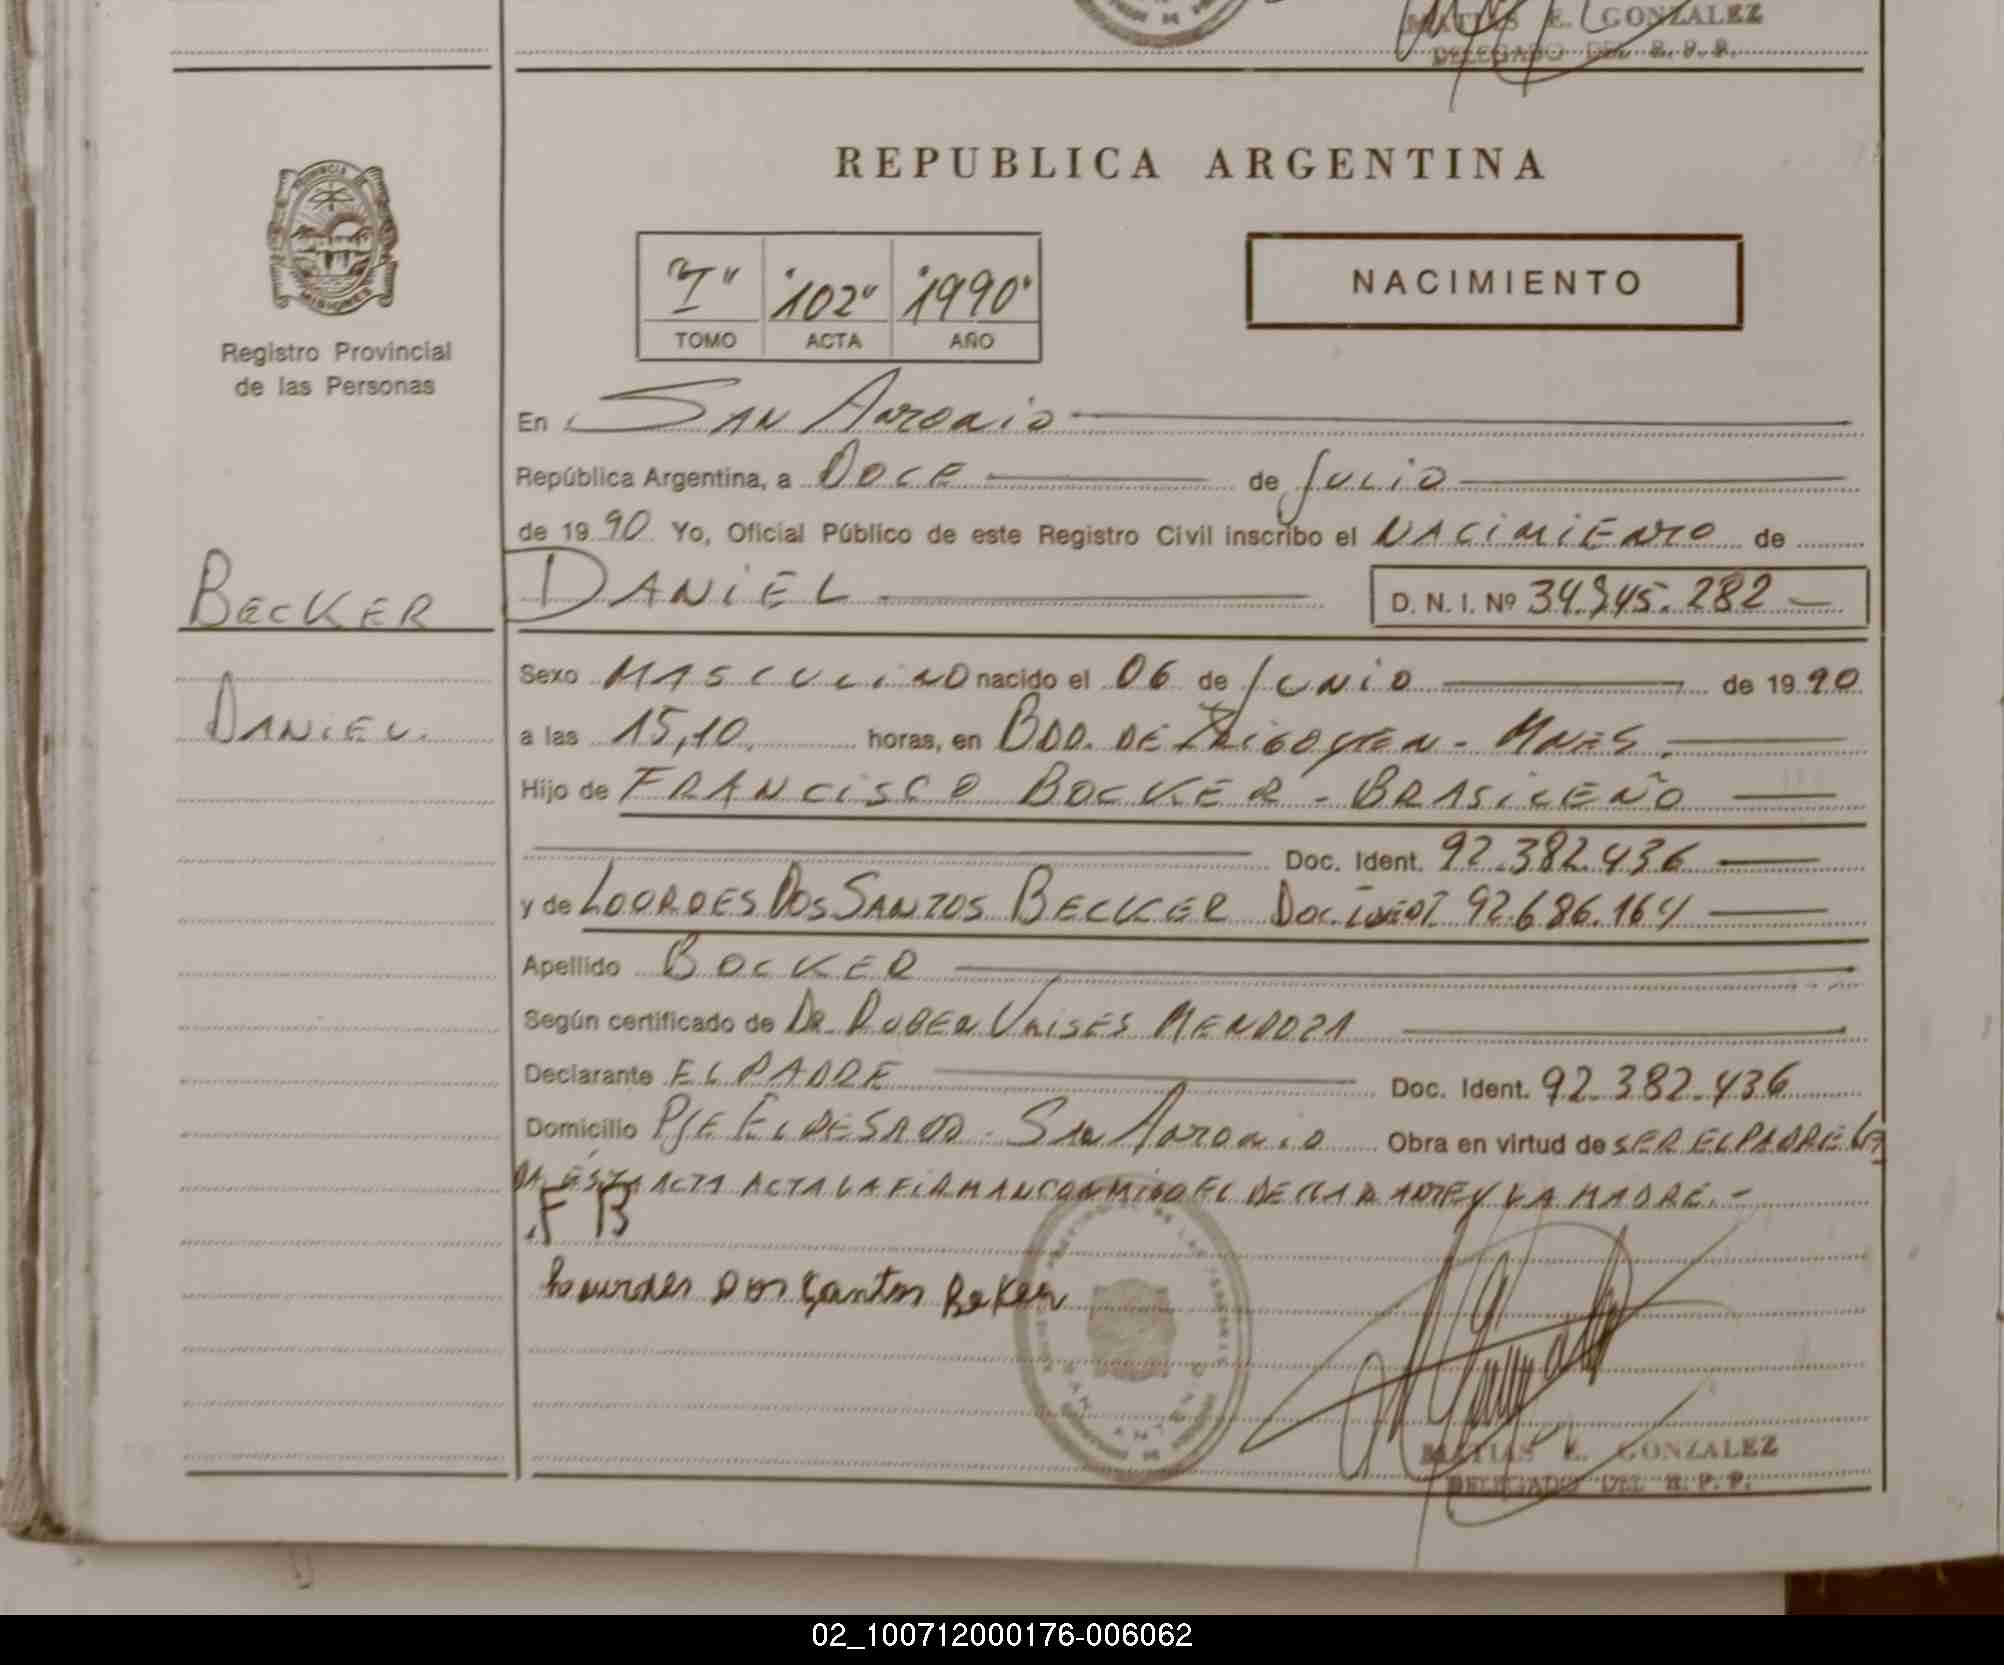 MATIAS E. GONZALEZ
DELEGADO DEL R. P. P.
REPUBLICA ARGENTINA
PROVINCIA DE
MISIONES
Registro Provincial
de las Personas
"I" "102" "1990"
TOMO ACTA AÑO
NACIMIENTO
En San Antonio
República Argentina, a Doce de Julio
de 19 90 Yo, Oficial Público de este Registro Civil inscribo el NACIMIENTO de
BECKER
DANIEL
DANIEL D. N. I. Nº 34.945.282
Sexo MASCULINO nacido el 06 de Junio de 19 90
a las 15,10 horas, en BDO. DE IRIGOYEN - MNES.
Hijo de FRANCISCO BOCKER - BRASILEÑO
Doc. Ident. 92.382.436
y de LOURDES DOS SANTOS BECKER Doc. IDENT 92.686.164
Apellido BOCKER
Según certificado de DR. RUBEN ULISES MENDOZA
Declarante EL PADRE Doc. Ident. 92.382.436
Domicilio PJE ELDESADO - San Antonio Obra en virtud de SER EL PADRE LE
DA ESTA ACTA ACTA LA FIRMAN CONMIGO EL DECLARANTE Y LA MADRE.-
F B
Lourdes Dos Santos Beker
MATIAS E. GONZALEZ
DELEGADO DEL R. P. P.
02_100712000176-006062